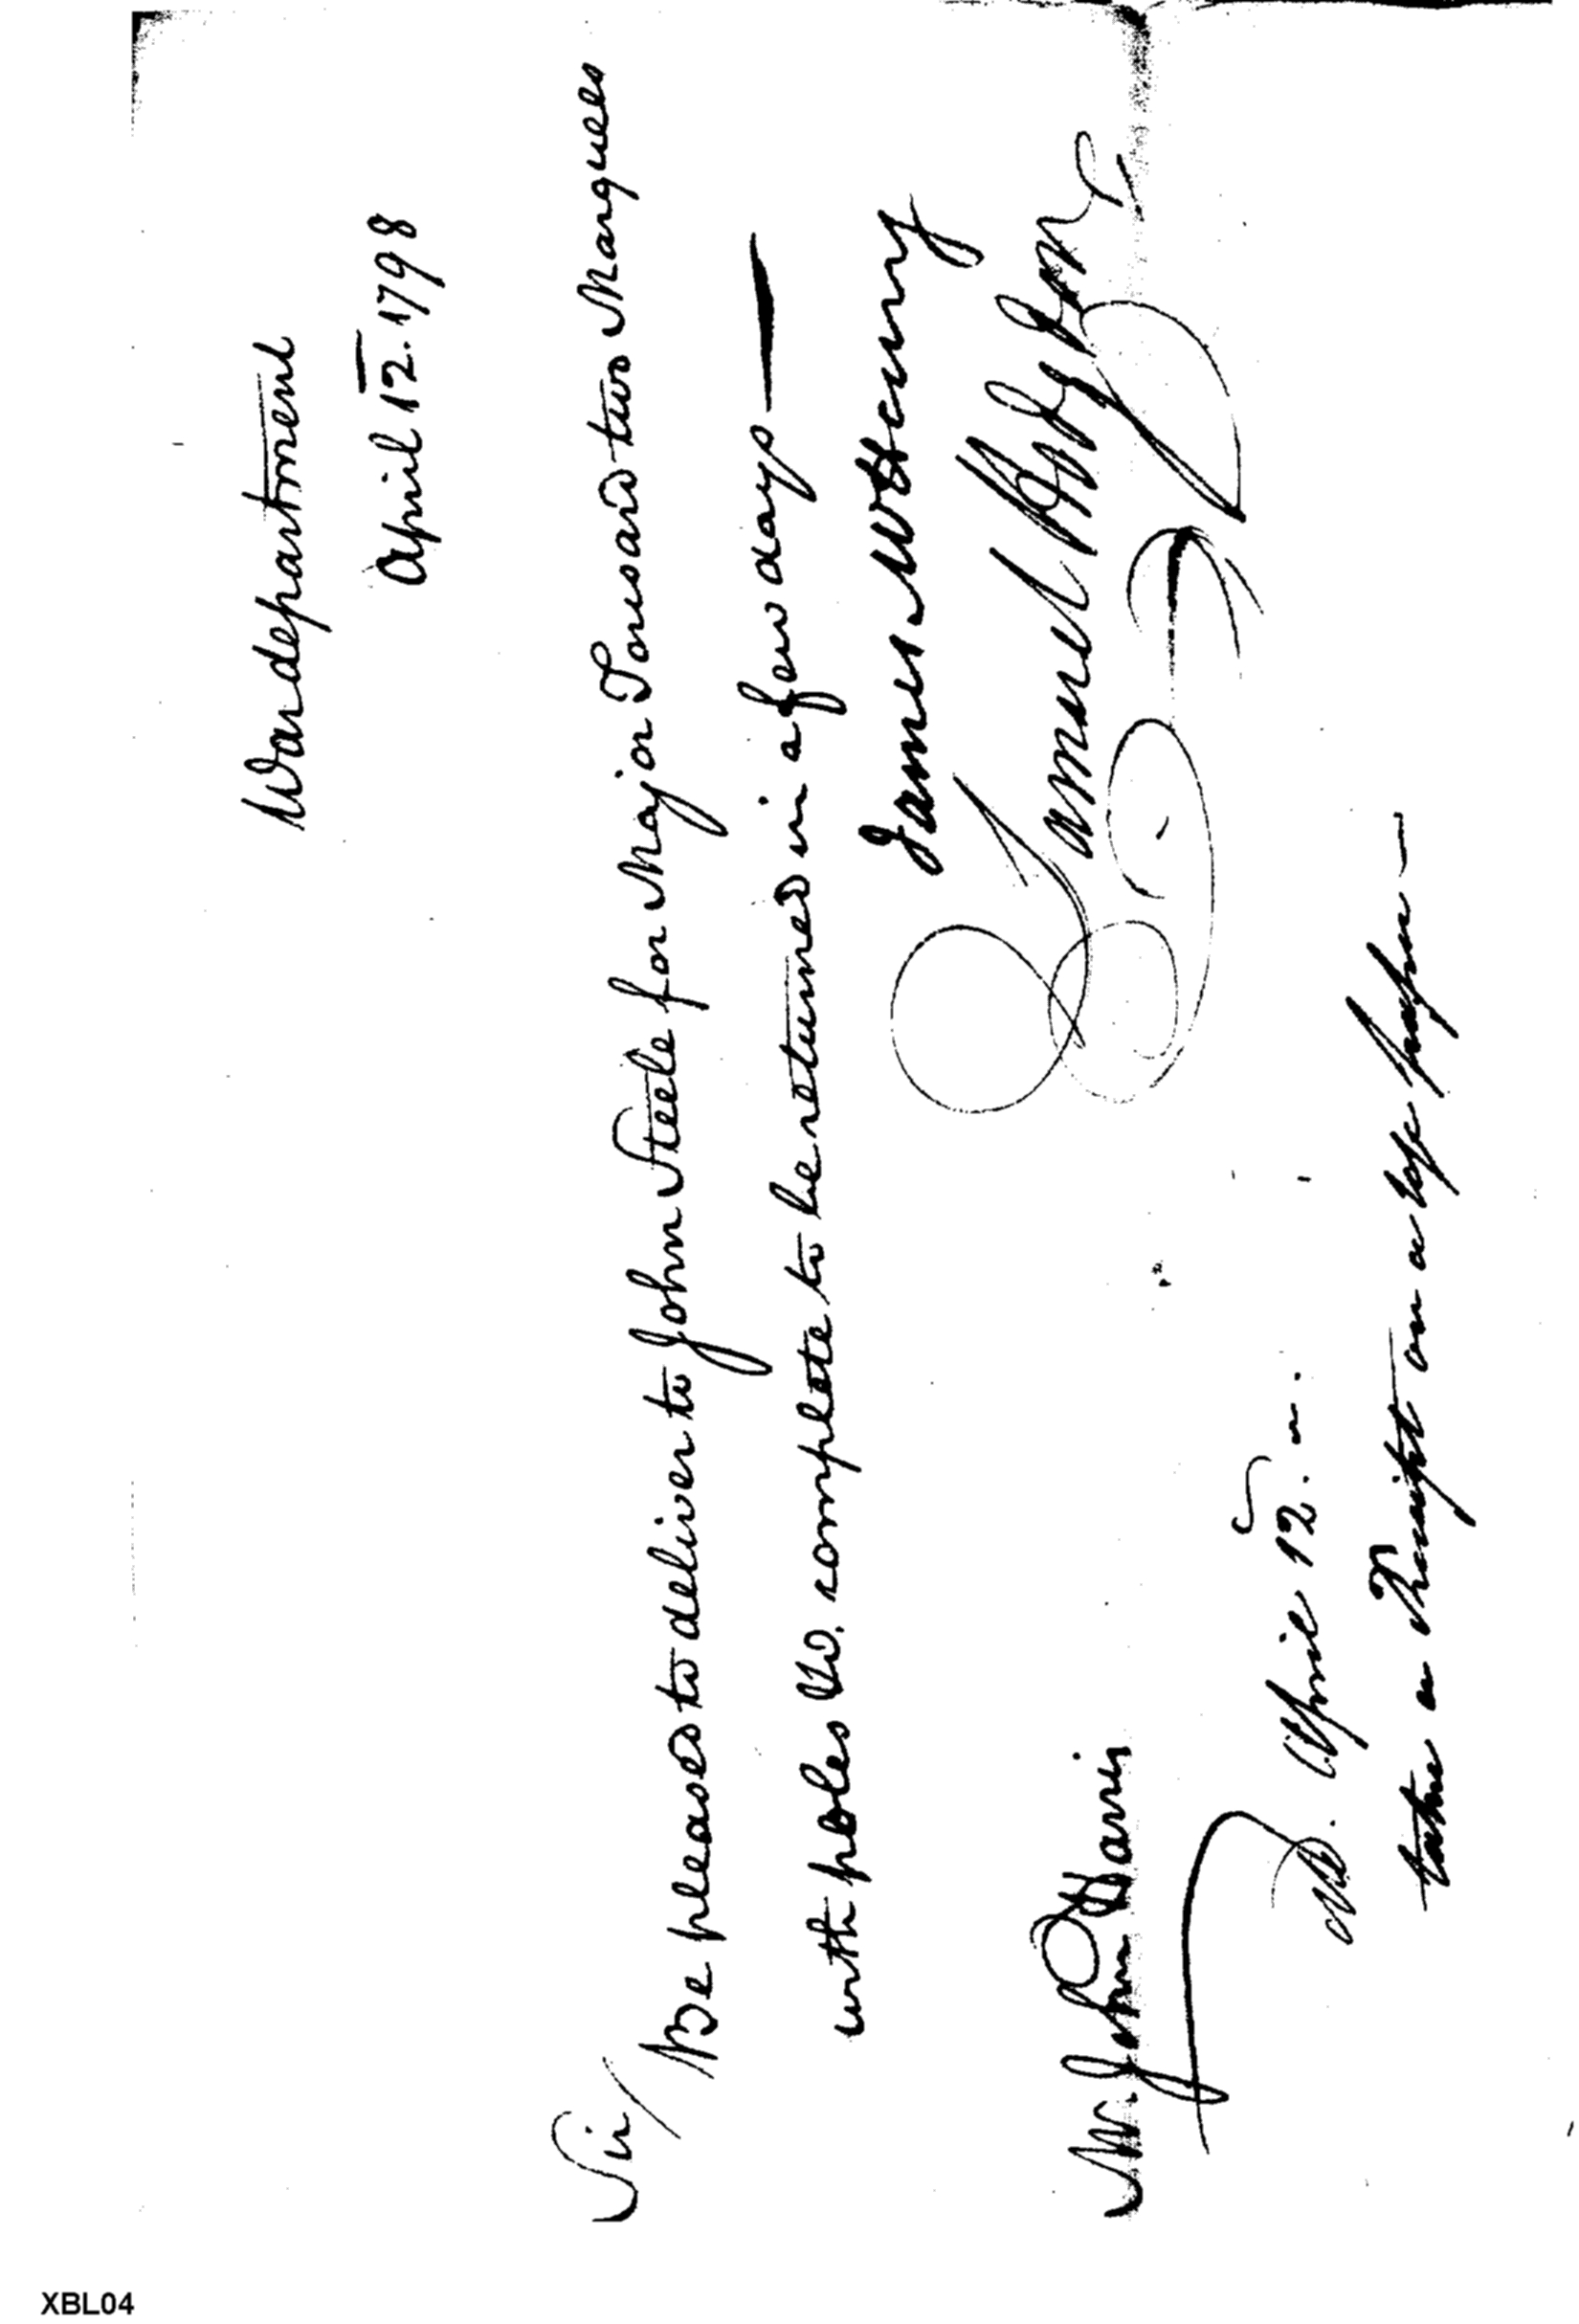 War department
April 12. 1798
Sir/
Be pleased to deliver to John Steele for Major Toussard two Marquees
with poles &c. complete to be returned in a few days—
James McHenry
Samuel Hodgdon
Mr. John Harris
April 12.
take a Receipt on a
XBL04